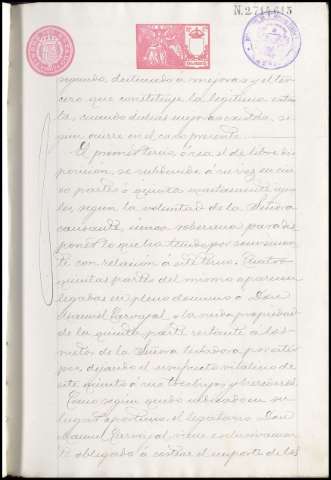 N.2.714.615
segundo, destinado á mejoras y el ter-
cero que constituye la legítima estric-
ta, cuando dichas mejoras existan, se-
gun ocurre en el caso presente.
El primer tercio, ó sea el de libre dis-
posición, se subdivide á su vez en cin-
co partes ó quintas exactamente igua-
les, segun la voluntad de la Señora
causante, única soberana para dis-
poner lo que ha tenido por conveniente
con relación á este tercio. Cuatro
quintas partes del mismo aparecen
legadas en pleno dominio á Don
Manuel Carvajal y la nuda propiedad
de la quinta parte restante á los
nietos de la Señora testadora por
dejando el usufructo vitalicio de
este quinto á sus tres hijos y herederos.
Como segun queda indicado en su
lugar oportuno, el legatario Don
Manuel Carvajal viene exclusivamen-
te obligado á costear el importe de los